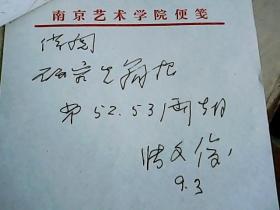 南京艺术学院便笺
借阅
研究生简报
第52.53两期
张文俊
9.3